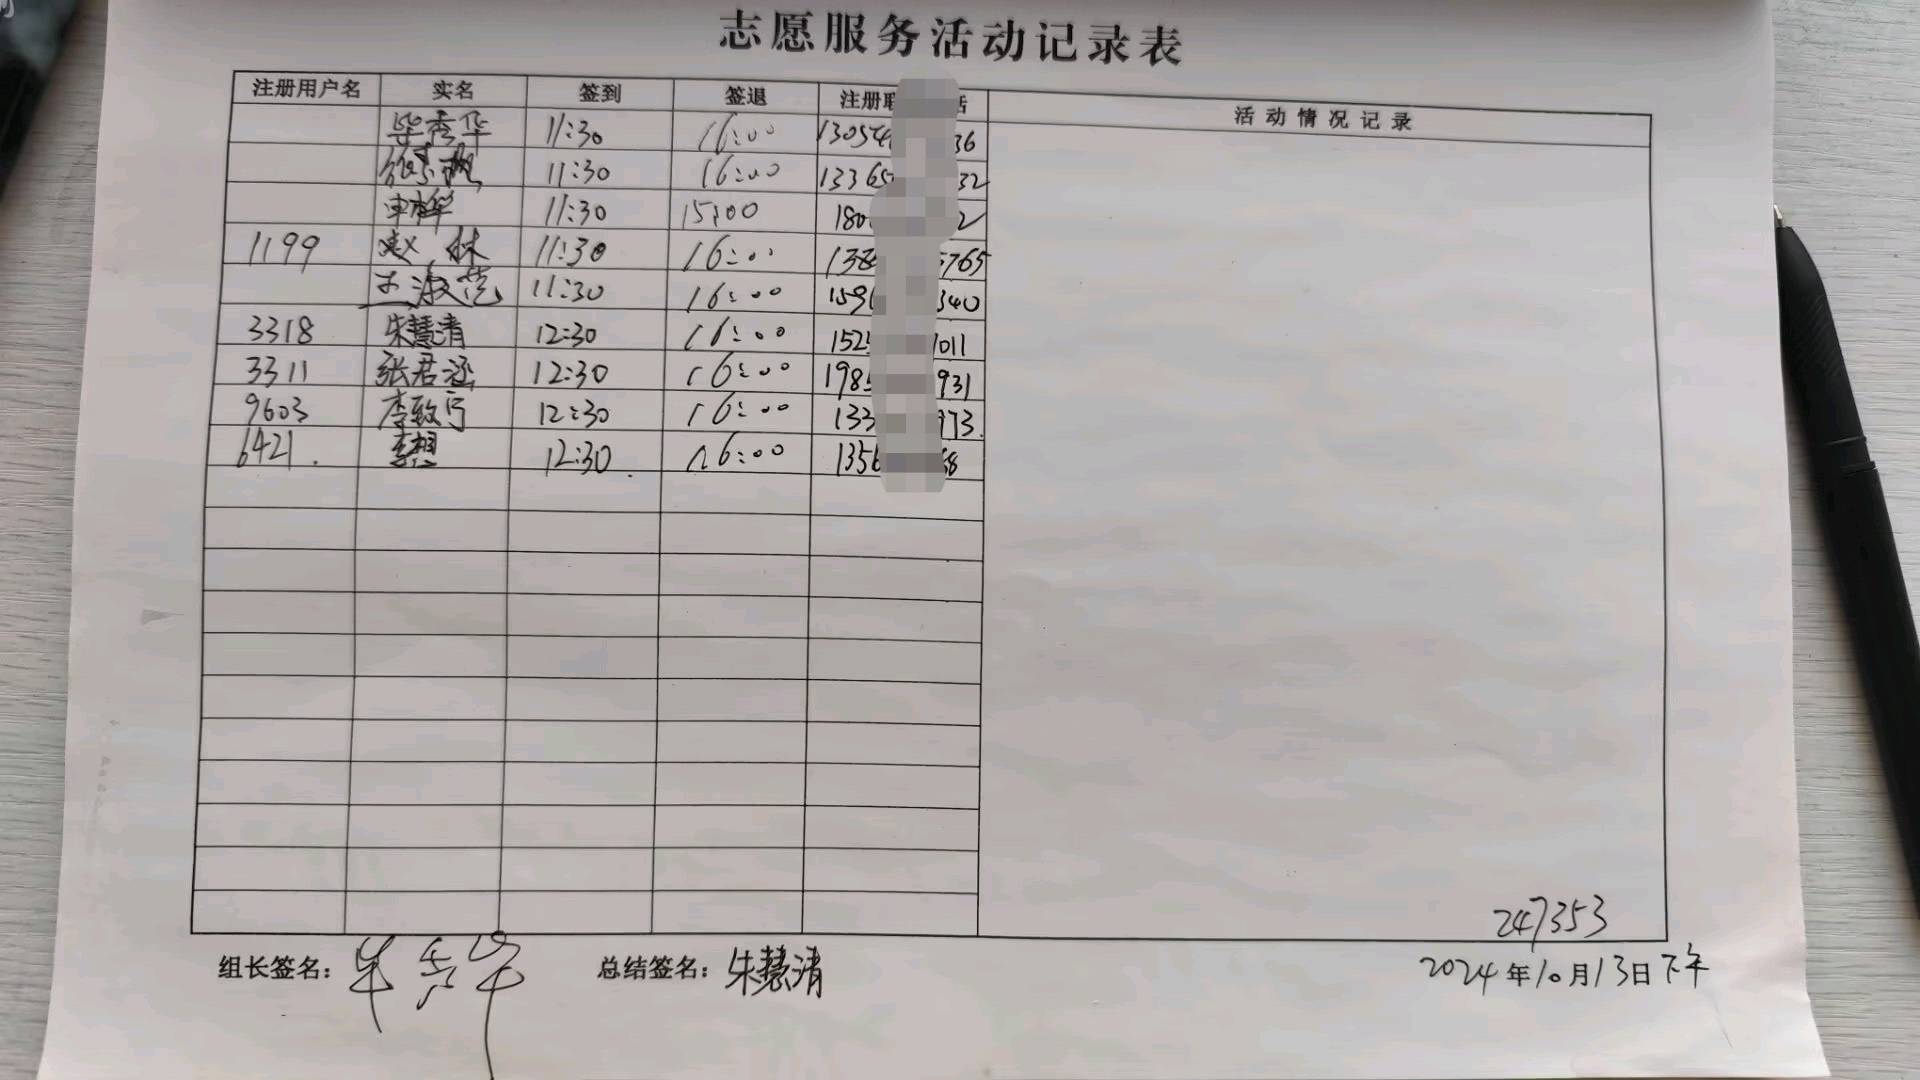 志愿服务活动记录表
注册用户名 实名 签到 签退 注册联 话 活动情况记录
毕秀华 11:30 16:00 13054 36
11:30 16:00 13365 32
11:30 15:00 180 2
1199 赵 林 11:30 16:00 138 5765
王淑范 11:30 16:00 159 340
3318 朱慧清 12:30 16:00 152 1011
3311 张君涵 12:30 16:00 198 931
9603 李致宁 12:30 16:00 133 973.
6421. 李想 12:30. 16:00 1356 68
247353
组长签名: 毕秀华 总结签名: 朱慧清 2024年10月13日下午